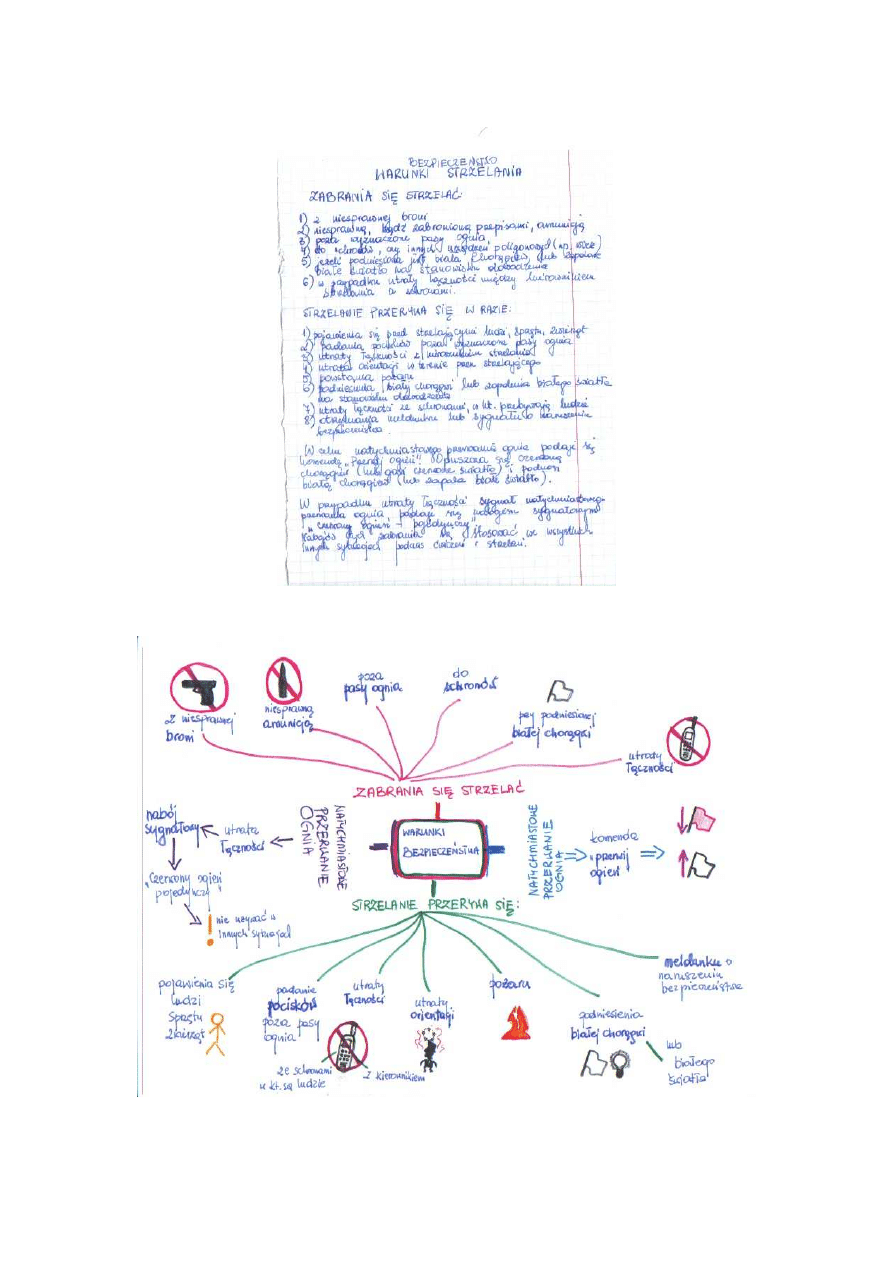 BEZPIECZEŃSTWO
WARUNKI STRZELANIA
ZABRANIA SIĘ STRZELAĆ:
1) z niesprawnej broni
2) niesprawną, bądź zabronioną przepisami, amunicją
3) poza wyznaczone pasy ognia
4) do schronów, czy innych urządzeń poligonowych (np. wież)
5) jeżeli podniesiona jest biała chorągiew, lub zapalone
białe światło na stanowisku dowodzenia
6) w przypadku utraty łączności między kierownikiem
strzelania a schronami.
STRZELANIE PRZERYWA SIĘ W RAZIE:
1) pojawienia się przed strzelającymi ludzi, sprzętu, zwierząt
2) padania pocisków poza wyznaczone pasy ognia
3) utraty łączności z kierownikiem strzelania
4) utraty orientacji w terenie przez strzelającego
5) powstania pożaru
6) podniesienia białej chorągwi lub zapalenia białego światła
na stanowisku dowodzenia
7) utraty łączności ze schronami, w kt. przebywają ludzie
8) otrzymania meldunku lub sygnału o naruszeniu
bezpieczeństwa.
W celu natychmiastowego przerwania ognia podaje się
komendę „Przerwij ogień"! Opuszcza się czerwoną
chorągiew (lub gasi czerwone światło) i podnosi
białą chorągiew (lub zapala białe światło).
W przypadku utraty łączności sygnał natychmiastowego
przerwania ognia, podaje się nabojem sygnałowym
„czerwony ogień - pojedynczy"
Nabojów tych zabrania się stosować we wszystkich
innych sytuacjach podczas ćwiczeń i strzelań.
z niesprawnej
broni
niesprawną
amunicją
poza
pasy ognia
do
schronów
przy podniesionej
białej chorągwi
utraty
łączności
ZABRANIA SIĘ STRZELAĆ
WARUNKI
BEZPIECZEŃSTWA
NATYCHMIASTOWE
PRZERWANIE
OGNIA
utrata
łączności
nabój
sygnałowy
"Czerwony ogień
pojedynczy"
nie używać w
innych sytuacjach
NATYCHMIASTOWE
PRZERWANIE
OGNIA
komenda
"przerwij
ogień"
STRZELANIE PRZERYWA SIĘ:
pojawienia się
ludzi
sprzętu
zwierząt
padanie
pocisków
poza pasy
ognia
utraty
łączności
ze schronami
w kt. są ludzie
z kierownikiem
utraty
orientacji
pożaru
podniesienia
białej chorągwi
lub
białego
światła
meldunku o
naruszeniu
bezpieczeństwa